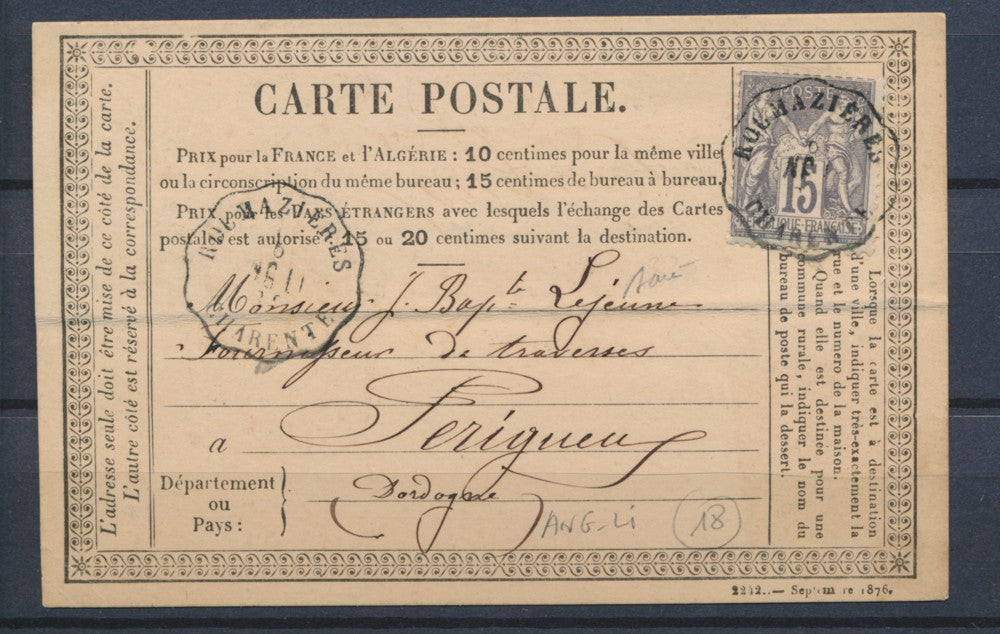 CARTE POSTALE.
PRIX pour la FRANCE et l'ALGÉRIE : 10 centimes pour la même ville
ou la circonscription du même bureau ; 15 centimes de bureau à bureau.
PRIX pour les PAYS ÉTRANGERS avec lesquels l'échange des Cartes
postales est autorisé 15 ou 20 centimes suivant la destination.
Monsieur J. Bapte Lejeune
Fournisseur de traverses
a Perigueux
Département
ou
Pays :
Dordogne
ANG-LI
18
L'adresse seule doit être mise de ce côté de la carte.
L'autre côté est réservé à la correspondance.
Lorsque la carte est à destination
d'une ville, indiquer très-exactement la
rue et le numero de la maison.
Quand elle est destinée pour une
commune rurale, indiquer le nom du
bureau de poste qui la dessert.
ROUMAZIERES
CHARENTE
ROUMAZIÈRES
15
2242.— Septembre 1876.